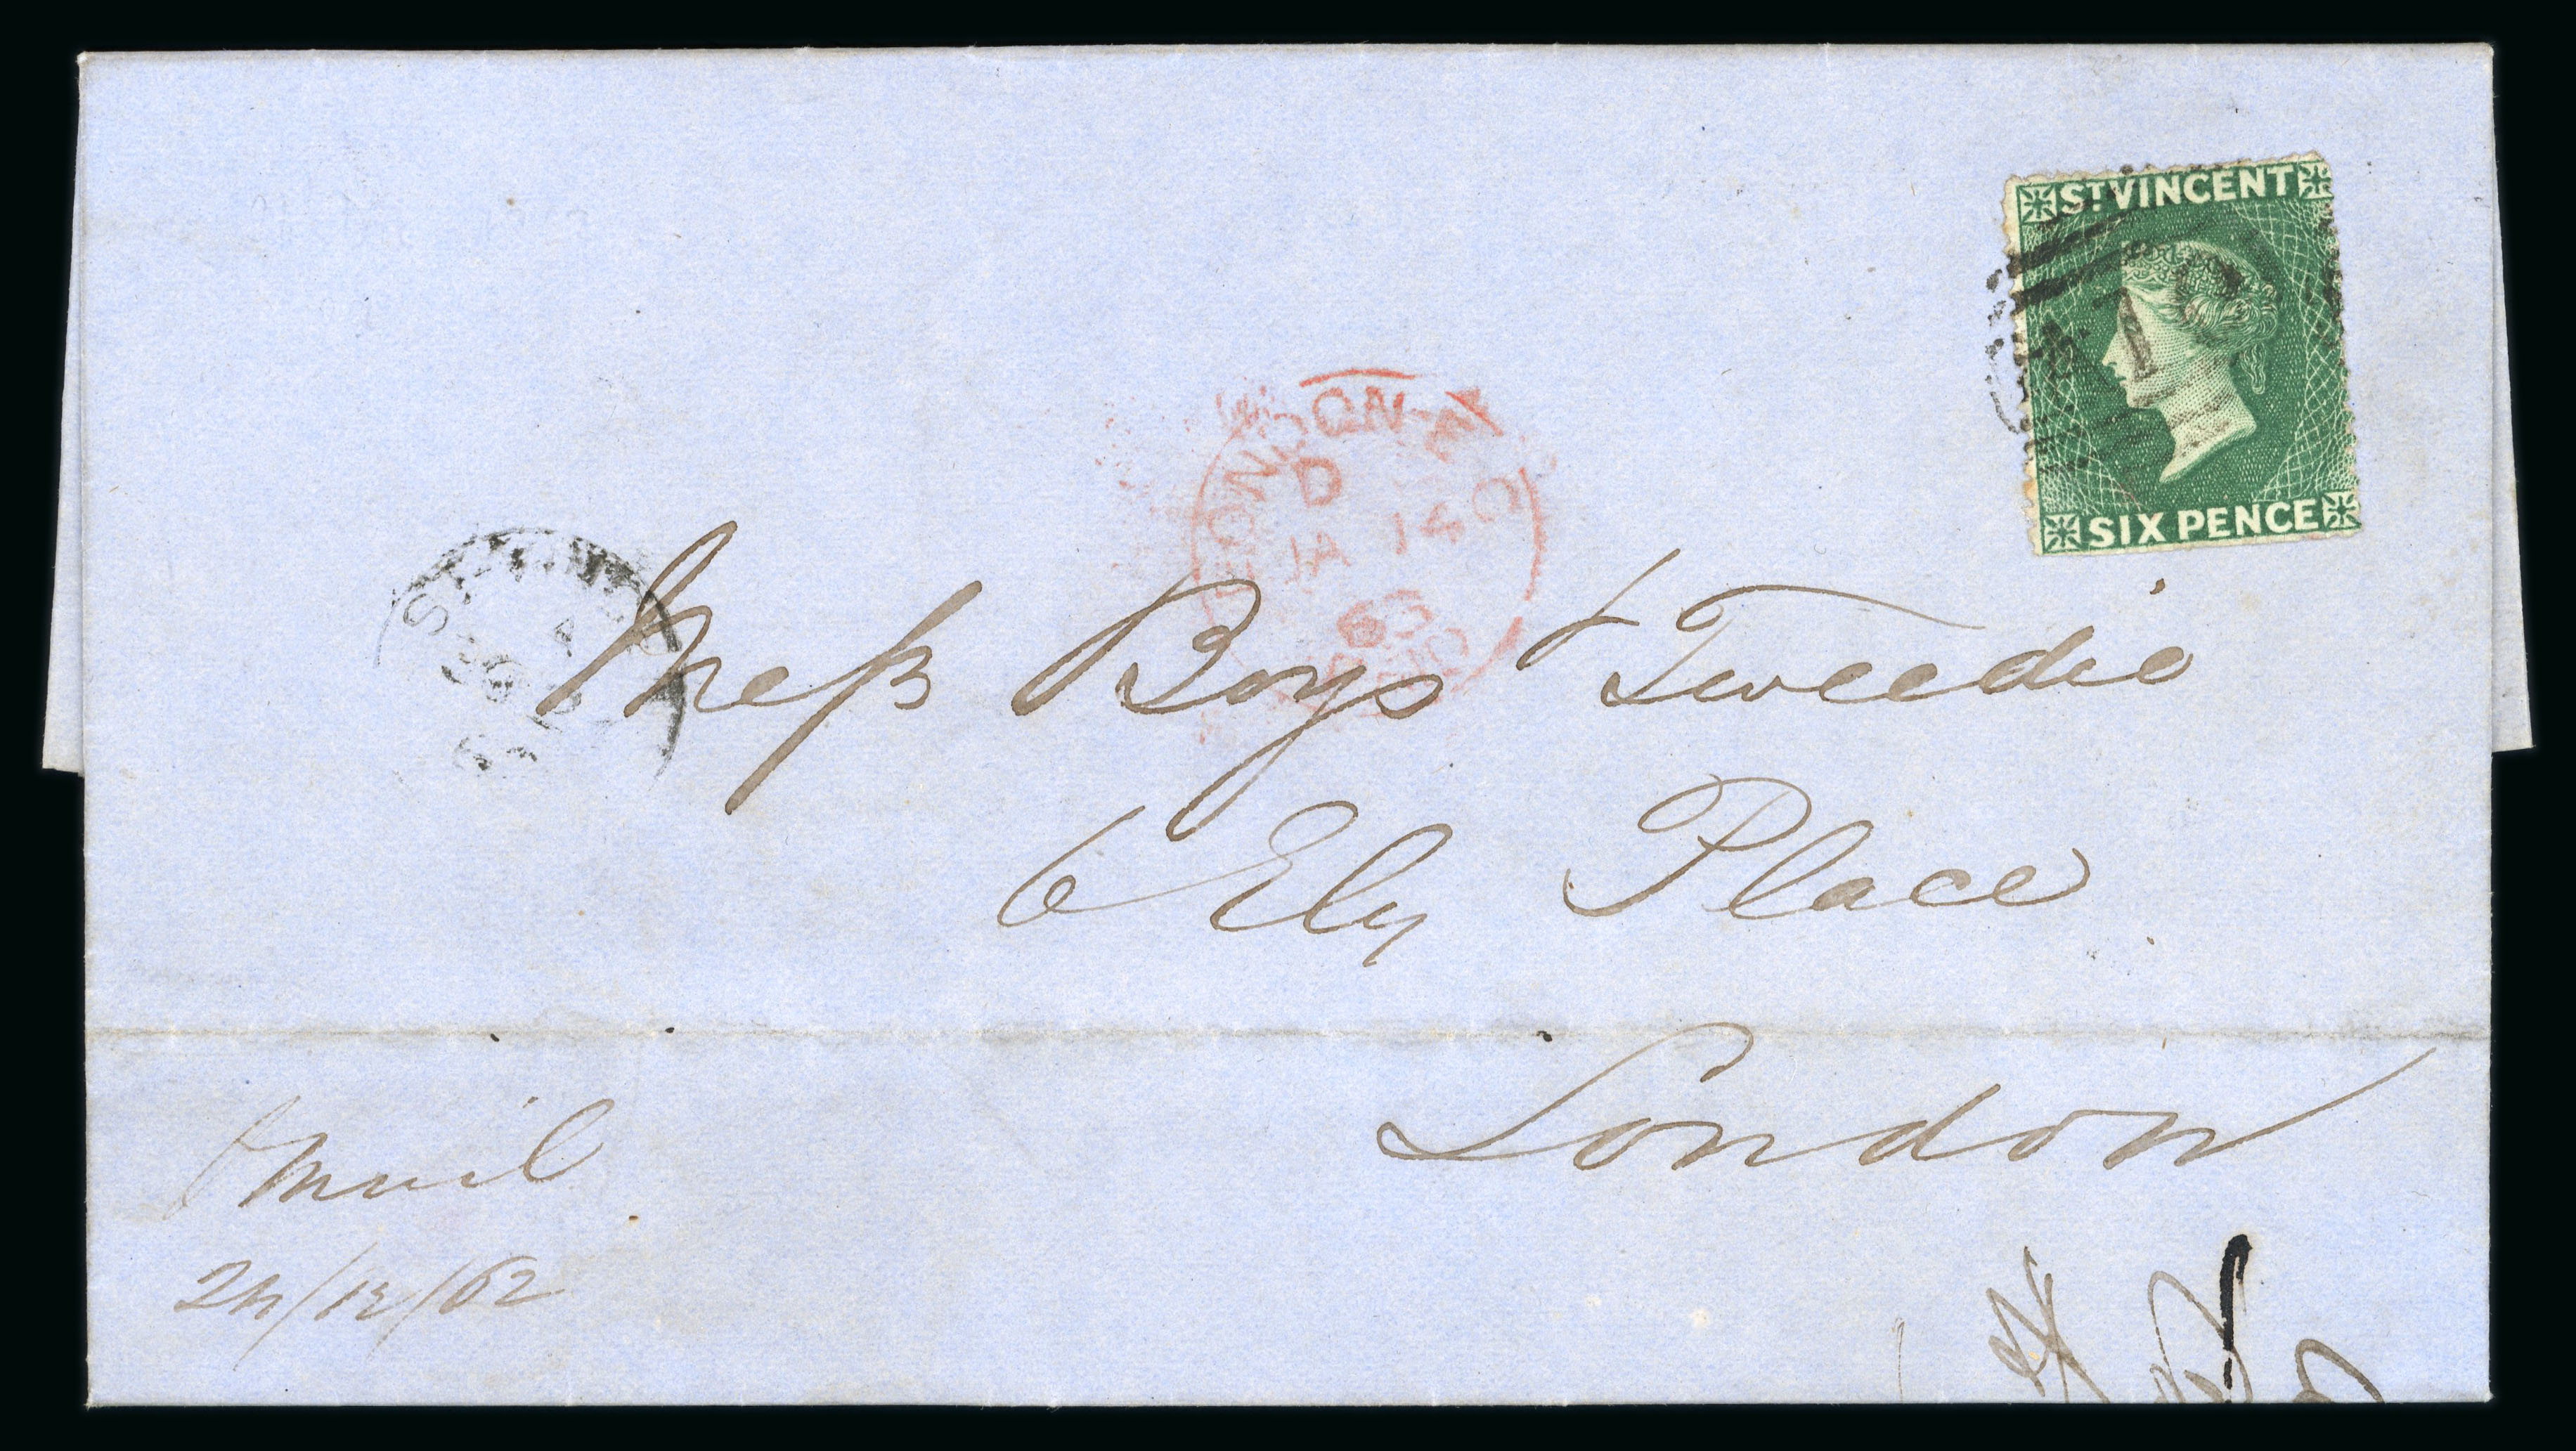 ST VINCENT
SIX PENCE
A10
LONDON
D
JA 14
63
PAID
ST. VINCENT
Mess Boys & Tweedie
6 Ely Place
London
pr mail
24/12/62